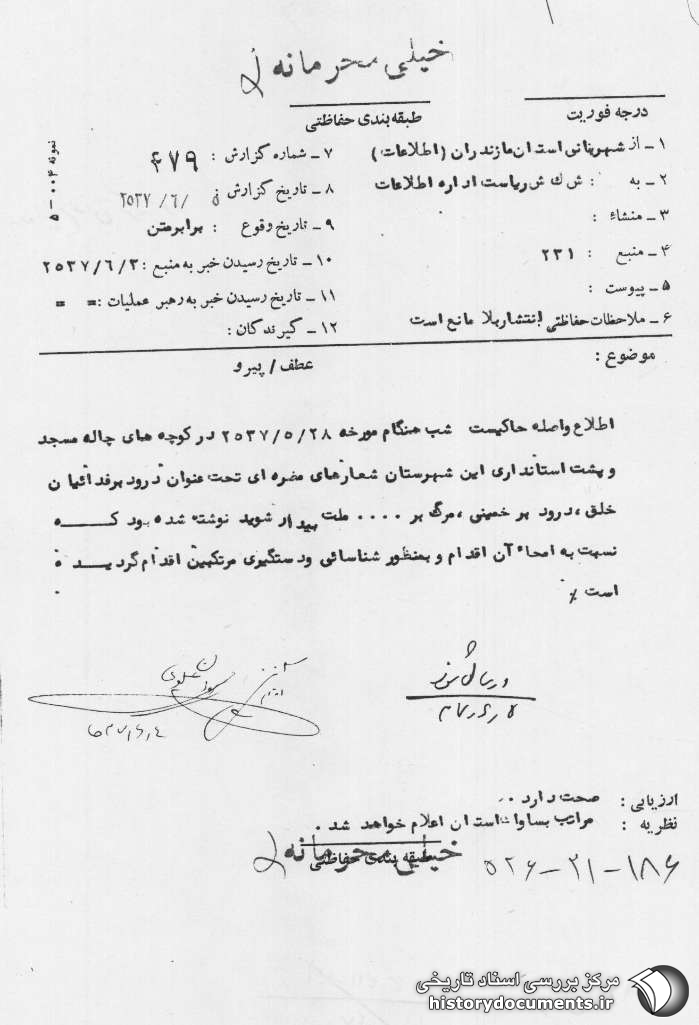 خیلی محرمانه
درجه فوریت
طبقه‌بندی حفاظتی
نمونه ۰۰۴ - ۵
۱ ـ از شهربانی استان مازندران (اطلاعات)
۲ ـ به : ش ك ش ریاست اداره اطلاعات
۳ ـ منشاء :
۴ ـ منبع : ۲۳۱
۵ ـ پیوست :
۶ ـ ملاحظات حفاظتی انتشار بلا مانع است
۷ ـ شماره گزارش : ۴۷۹
۸ ـ تاریخ گزارش /۶/ ۲۵۳۷
۹ ـ تاریخ وقوع : برابر متن
۱۰ ـ تاریخ رسیدن خبر به منبع : ۲۵۳۷/۶/۳
۱۱ ـ تاریخ رسیدن خبر به رهبر عملیات : = =
۱۲ ـ گیرندگان :
موضوع :
عطف / پیرو
اطلاع واصله حاکیست شب هنگام مورخه ۲۵۳۷/۵/۲۸ در کوچه های چاله مسجد
و پشت استانداری این شهرستان شعارهای مضره ای تحت عنوان درود بر فدائیان
خلق ، درود بر خمینی ، مرگ بر .... ملت بیدار شوید نوشته شده بود که
نسبت به امحاء آن اقدام و بمنظور شناسائی و دستگیری مرتکبین اقدام گردیده
است
ارزیابی : صحت دارد ..
نظریه : مراتب بساواك استان اعلام خواهد شد .
طبقه بندی حفاظتی
خیلی محرمانه
۵۲۶-۲۱-۱۸۶
مرکز بررسی اسناد تاریخی
historydocuments.ir